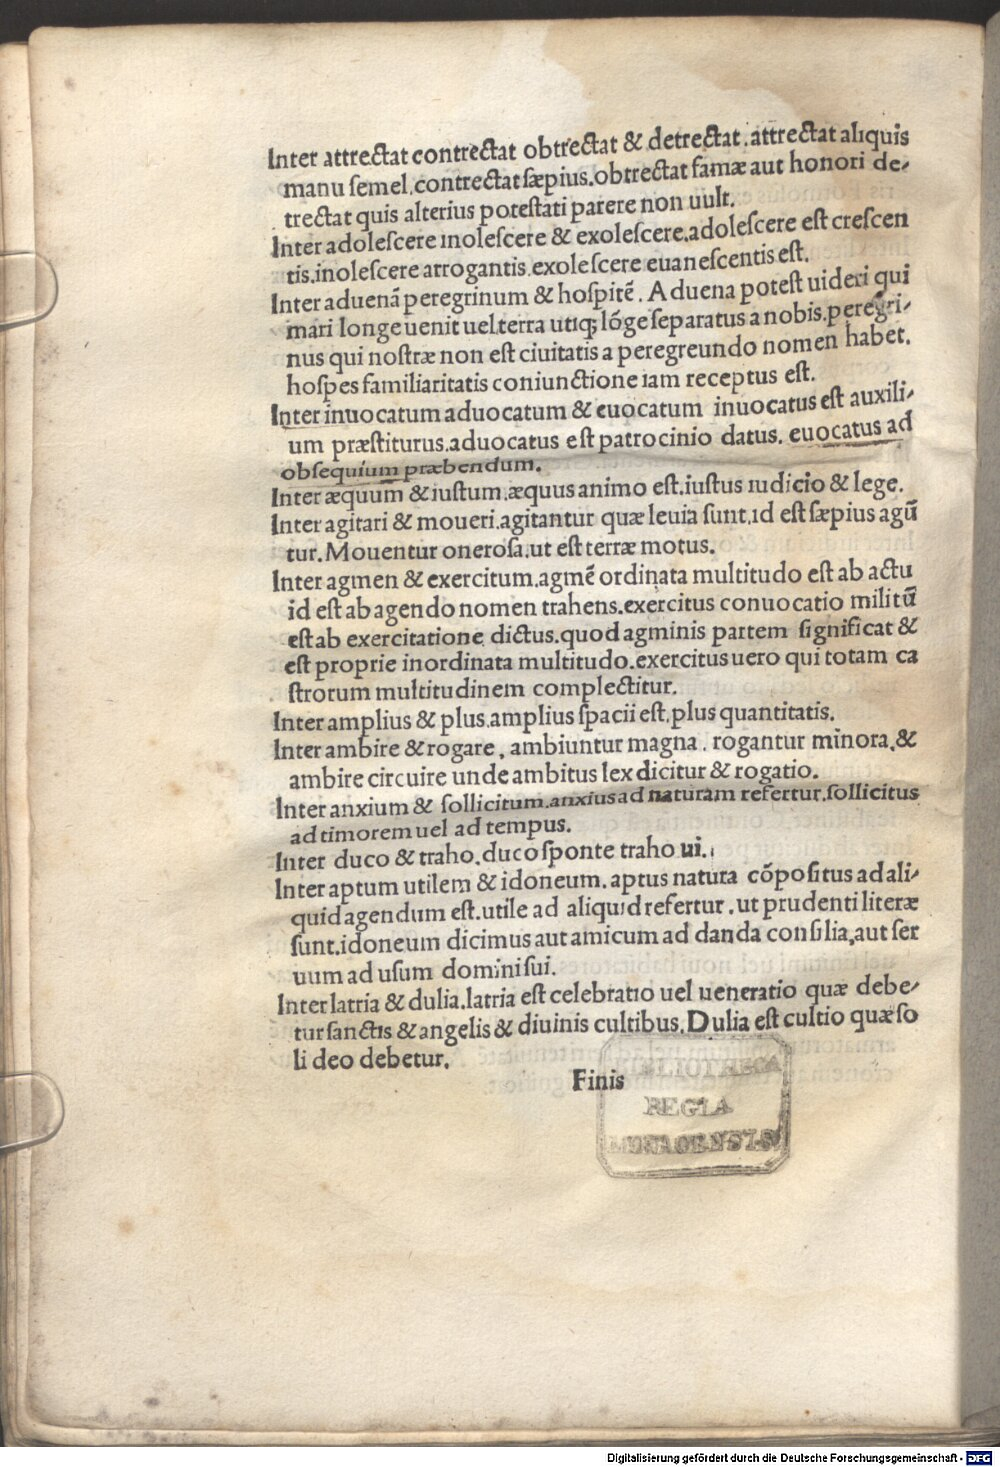 Inter attrectat contrectat obtrectat & detrectat. attrectat aliquis
manu ſemel. contrectat ſæpius. obtrectat famæ aut honori de-
trectat quis alterius poteſtati parere non uult.
Inter adoleſcere inoleſcere & exoleſcere. adoleſcere eſt creſcen
tis. inoleſcere arrogantis. exoleſcere euaneſcentis eſt.
Inter aduenā peregrinum & hoſpitē. Aduena poteſt uideri qui
mari longe uenit uel terra utiq; lōge ſeparatus a nobis. peregri-
nus qui noſtræ non eſt ciuitatis a peregreundo nomen habet.
hoſpes familiaritatis coniunctione iam receptus eſt.
Inter inuocatum aduocatum & euocatum inuocatus eſt auxili-
um præſtiturus. aduocatus eſt patrocinio datus. euocatus ad
obſequium præbendum.
Inter æquum & iuſtum. æquus animo eſt. iuſtus iudicio & lege.
Inter agitari & moueri. agitantur quæ leuia ſunt. id eſt ſæpius agū
tur. Mouentur oneroſa. ut eſt terræ motus.
Inter agmen & exercitum. agmē ordinata multitudo eſt ab actu
id eſt ab agendo nomen trahens. exercitus conuocatio militū
eſt ab exercitatione dictus. quod agminis partem ſignificat &
eſt proprie inordinata multitudo. exercitus uero qui totam ca
ſtrorum multitudinem complectitur.
Inter amplius & plus. amplius ſpacii eſt. plus quantitatis.
Inter ambire & rogare, ambiuntur magna. rogantur minora, &
ambire circuire unde ambitus lex dicitur & rogatio.
Inter anxium & ſollicitum. anxius ad naturam refertur. ſollicitus
ad timorem uel ad tempus.
Inter duco & traho. duco ſponte traho ui.
Inter aptum utilem & idoneum. aptus natura cōpoſitus ad ali-
quid agendum eſt. utile ad aliquid refertur. ut prudenti literæ
ſunt. idoneum dicimus aut amicum ad danda conſilia, aut ſer
uum ad uſum domini ſui.
Inter latria & dulia. latria eſt celebratio uel ueneratio quæ debe-
tur ſanctis & angelis & diuinis cultibus. Dulia eſt cultio quæ ſo
li deo debetur.
Finis
BIBLIOTHECA
REGIA
MONACENSIS
Digitalisierung gefördert durch die Deutsche Forschungsgemeinschaft - DFG